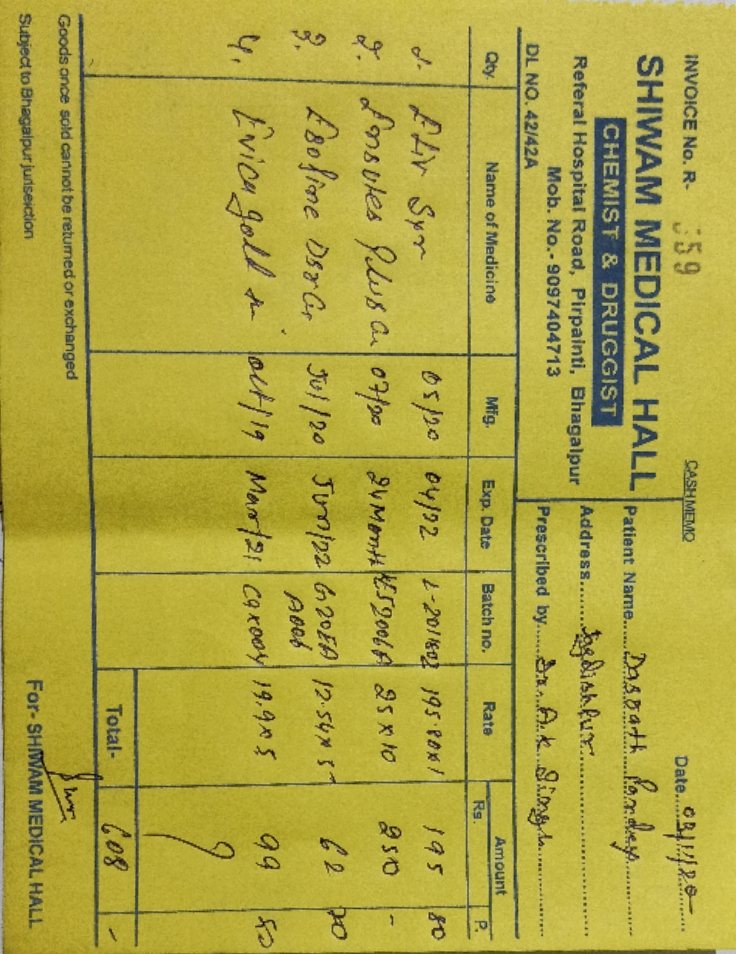 INVOICE No. R- 359 CASH MEMO Date 03/11/20
SHIWAM MEDICAL HALL
CHEMIST & DRUGGIST
Referal Hospital Road, Pirpainti, Bhagalpur
Mob. No.- 9097404713
DL NO. 42/42A
Patient Name Pandey
Address
Prescribed by Dr. A.K Singh
Qty. Name of Medicine Mfg. Exp. Date Batch no. Rate Amount
Rs. P.
1. Syr 05/20 04/22 L-201802 195.80x1 195 80
2. 07/20 24 Month 25x10 250 -
3. Jul/20 Jun/22 12.54x5 62 70
4. gold Oct/19 Mar/21 19.9x5 99 50
Total- 608 -
Goods once sold cannot be returned or exchanged
Subject to Bhagalpur juriseiction
For- SHIWAM MEDICAL HALL